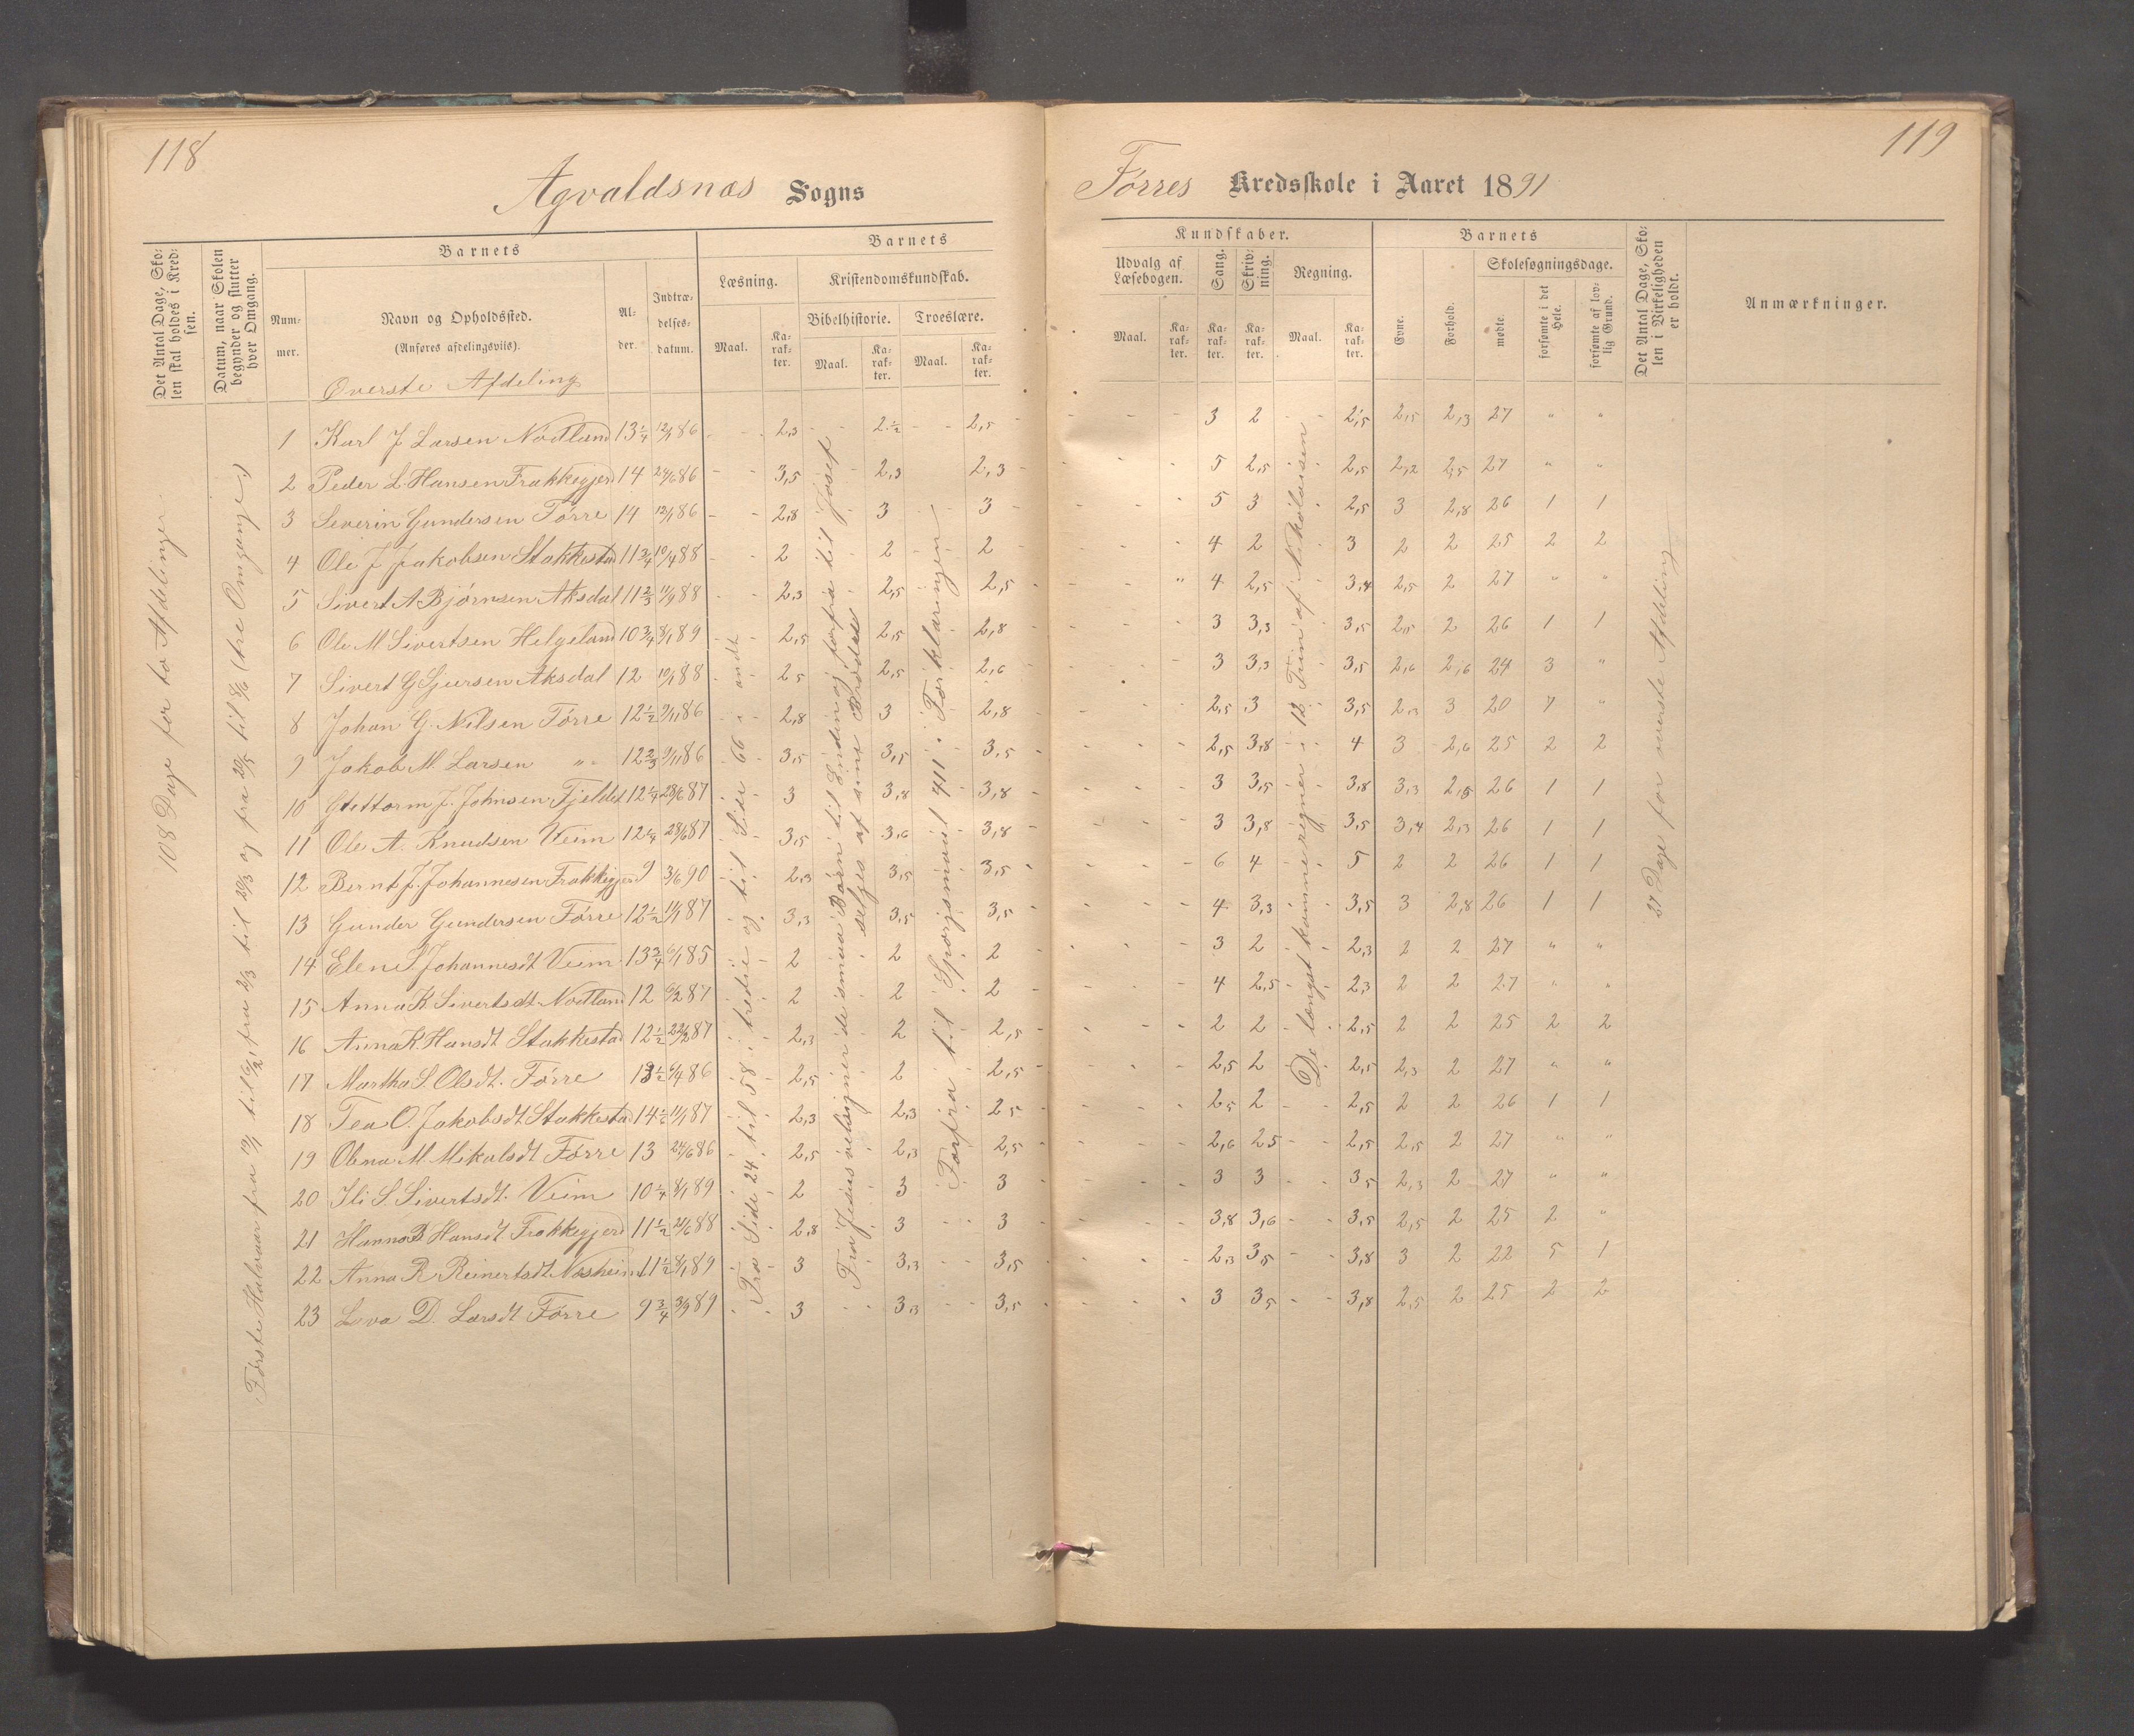 118
119
Agvaldsnæs Sogns
Førres Kredsskole i Aaret 1891
Det Antal Dage, Skolen skal holdes i Kredsen.
Datum, naar Skolen begynder og slutter hver Omgang.
Barnets
Nummer.
Navn og Opholdssted.
(Anføres afdelingsviis).
Alder.
Indtrædelsesdatum.
Barnets
Læsning.
Kristendomskundskab.
Bibelhistorie. Troeslære.
Maal. Karakter. Maal. Karakter. Maal. Karakter.
Kundskaber.
Udvalg af Læsebogen. Sang. Skrivning. Regning.
Maal. Karakter. Karakter. Karakter. Maal. Karakter.
Barnets
Evne. Forhold. Skolesøgningsdage.
mødte. forsømte i det Hele. forsømte af lovlig Grund.
Det Antal Dage, Skolen i Virkeligheden er holdt.
Anmærkninger.
Øverste Afdeling
108 Dage for to Afdelinger
Første Halvaar fra 12/1 til 6/2, fra 2/3 til 20/3 og fra 20/5 til 8/6 (tre Omgange)
Fra Side 24 til 58 i tredie og til Side 66 i andet
Fra Jesus velsigner de smaa Børn til Enden og forfra til Josef
selges af sine Brødre
Forfra til Spørgsmaal 411 i Forklaringen
De længst komne regner i 12 Trin af Nikolaisen
27 Dage for øverste Afdeling
1 Karl J Larsen Nodland 13 1/4 12/1 86 2,3 2 1/2 2,5 3 2 2,5 2,5 2,3 27 " "
2 Peder L Hansen Frakkegjerd 14 24/6 86 3,5 2,3 2,3 5 2,5 2,5 2,2 2,5 27 " "
3 Severin Gundersen Førre 14 12/1 86 2,8 3 3 5 3 2,5 3 2,8 26 1 1
4 Ole J Jakobsen Stakkestad 11 3/4 10/4 88 2 2 2 4 2 3 2 2 25 2 2
5 Sivert A Bjørnsen Aksdal 11 2/3 11/9 88 2,3 2,5 2,5 " 4 2,5 3,4 2,5 2 27 " "
6 Ole M Sivertsen Helgeland 10 3/4 8/1 89 2,5 2,5 2,8 3 3,3 3,5 2,5 2 26 1 1
7 Sivert G Sjursen Aksdal 12 10/1 88 2 5 2,5 2,6 3 3,3 3,5 2,6 2,6 24 3 "
8 Johan G. Nilsen Førre 12 1/2 9/11 86 2,8 3 2,8 2,5 3 3,5 2,3 3 20 7 "
9 Jakob M. Larsen " " 12 2/3 9/11 86 3,5 3,5 3,5 2,5 3,8 4 3 2,6 25 2 2
10 Gtettorm J. Johnsen Fjeldet 12 1/4 28/6 87 3 3,8 3,8 3 3,5 3,8 3,3 2,8 26 1 1
11 Ole A. Knudsen Veim 12 1/4 28/6 87 3,5 3,6 3,8 3 3,8 3,5 3,4 2,3 26 1 1
12 Bernt J. Johannesen Frakkegjerd 9 3/6 90 2,3 3,5 3,5 6 4 5 2 2 26 1 1
13 Gunder Gundersen Førre 12 1/2 11/1 87 3,3 3,5 3,5 4 3,3 3,5 3 2,8 26 1 1
14 Elen S. Johannesdt Veim 13 3/4 6/1 85 2 2 2 3 2 2,3 2 2 27 " "
15 Anna K. Sivertsdt. Nodland 12 9/2 87 2 2 2 4 2,5 2,3 2 2 27 " "
16 Anna K. Hansdt Stakkestad 12 1/2 22/2 87 2,3 2 2,5 2 2 2,5 2 2 25 2 2
17 Martha S. Olsdt. Førre 13 1/2 6/4 86 2,5 2 2,5 2,5 2 2,5 2,3 2 27 " "
18 Tea O. Jakobsdt Stakkestad 14 1/2 11/1 87 2,3 2,3 2 5 2 5 2 2,5 2 2 26 1 1
19 Olena M. Mikalsdt Førre 13 24/6 86 2,5 2,3 2,5 2,6 2 5 2,5 2,5 2 27 " "
20 Ili S. Sivertsdt. Veim 10 1/4 8/1 89 2 3 3 3 3 3 5 2,3 2 27 " "
21 Hanna B Hansdt Frakkegjerd 11 1/2 21/6 88 2,8 3 3 3,8 3,6 3,5 2,5 2 25 2 "
22 Anna R Reinertsdt Næsheim 11 1/2 8/1 89 3 3,3 3,5 2,3 3 5 3,8 3 2 22 5 1
23 Lova D. Larsdt Førre 9 3/4 3/9 89 3 3,3 3,5 3 3 5 3,8 2,5 2 25 2 2